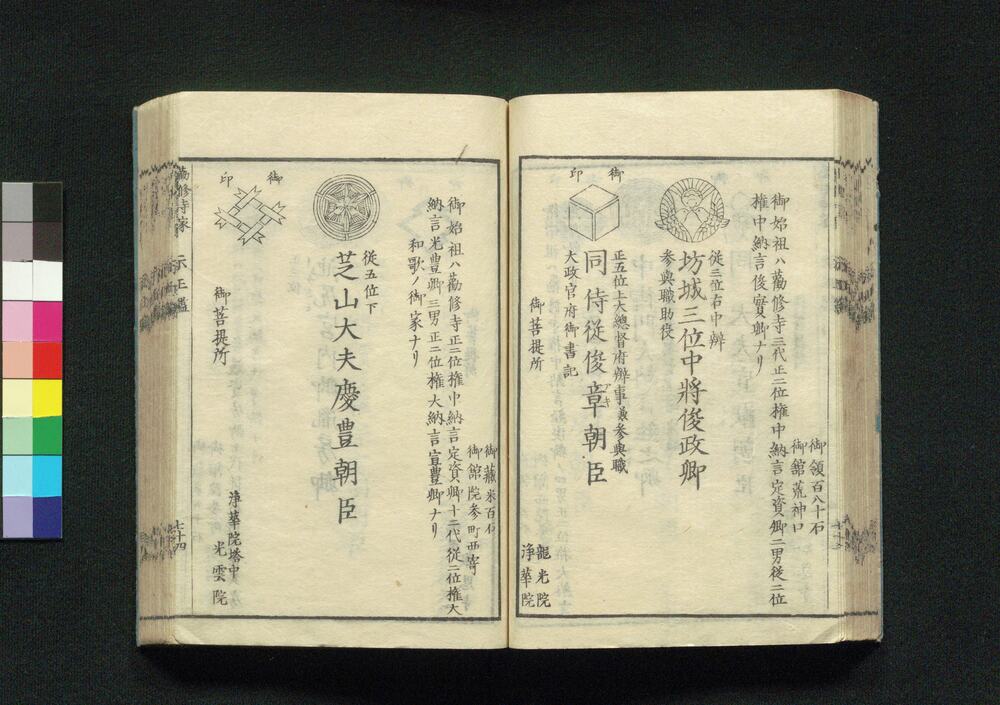 御領百八十石
御館荒神口
御始祖ハ勸修寺三代正二位権中納言定資卿二男従二位
権中納言俊實卿ナリ
従三位右中辨
坊城三位中將俊政卿
参與職助役
御印
正五位上大總督府辨事兼参與職
同侍従俊章朝臣
アキ
大政官府御書記
御菩提所
龍光院
浄華院
御蔵米百石
御館院参町西寄
御始祖ハ勸修寺正二位権中納言定資卿十二代従二位権大
納言光豊卿三男正二位権大納言宣豊卿ナリ
和歌ノ御家ナリ
従五位下
芝山大夫慶豊朝臣
御印
御菩提所
浄華院塔中
光雲院
勸修寺家
七十四